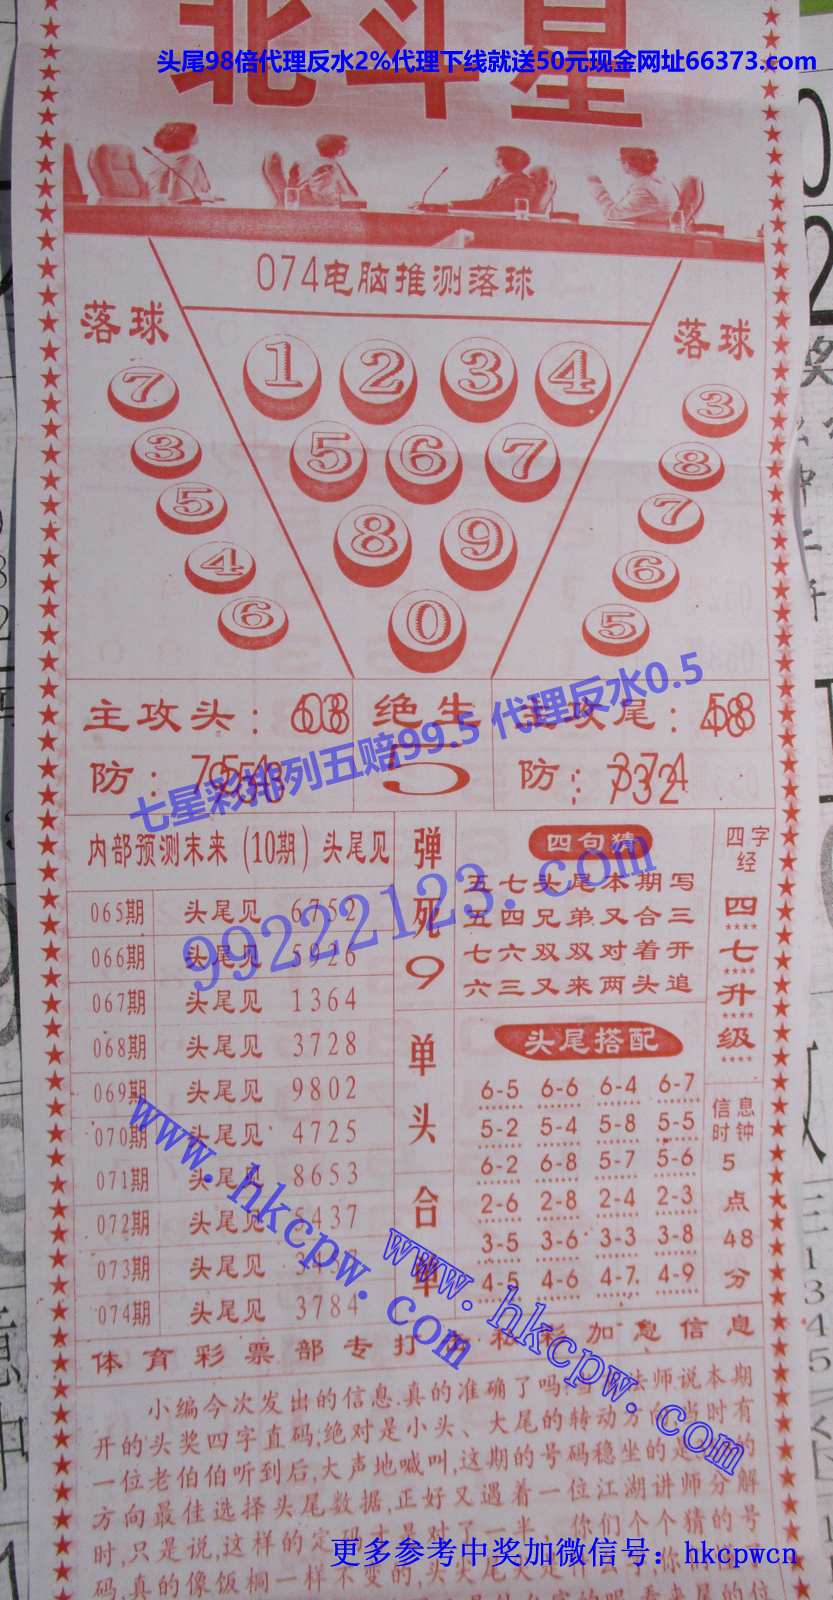 北斗星
头尾98倍代理反水2%代理下线就送50元现金网址66373.com
074电脑推测落球
落球
落球
1 2 3 4
5 6 7
8 9
0
7
3
5
4
6
3
8
7
6
5
主攻头:
绝生
主攻尾:
防:
5
防:
七星彩排列五赔99.5 代理反水0.5
内部预测末来(10期)头尾见
065期 头尾见 6752
066期 头尾见 5926
067期 头尾见 1364
068期 头尾见 3728
069期 头尾见 9802
070期 头尾见 4725
071期 头尾见 8653
072期 头尾见 5437
073期 头尾见
074期 头尾见 3784
99222123.com
弹死9
单头
合单
四句猜
五七头尾本期写
五四兄弟又合三
七六双双对着开
六三又来两头追
头尾搭配
6-5 6-6 6-4 6-7
5-2 5-4 5-8 5-5
6-2 6-8 5-7 5-6
2-6 2-8 2-4 2-3
3-5 3-6 3-3 3-8
4-5 4-6 4-7 4-9
四字经
四七升级
信息时钟
5点48分
www.hkcpw.com
www.hkcpw.com
体育彩票部专打 私彩加息信息
小编今次发出的信息.真的准确了吗 法师说本期
开的头奖四字直码;绝对是小头、大尾的转动方向,当时有
一位老伯伯听到后,大声地喊叫,这期的号码稳坐的是 的
方向最佳选择头尾数据,正好又遇着一位江湖讲师分解
时,只是说,这样的定码才是对了一半,你们个个猜的号
码,真的像饭桶一样不变的,头
更多参考中奖加微信号：hkcpwcn